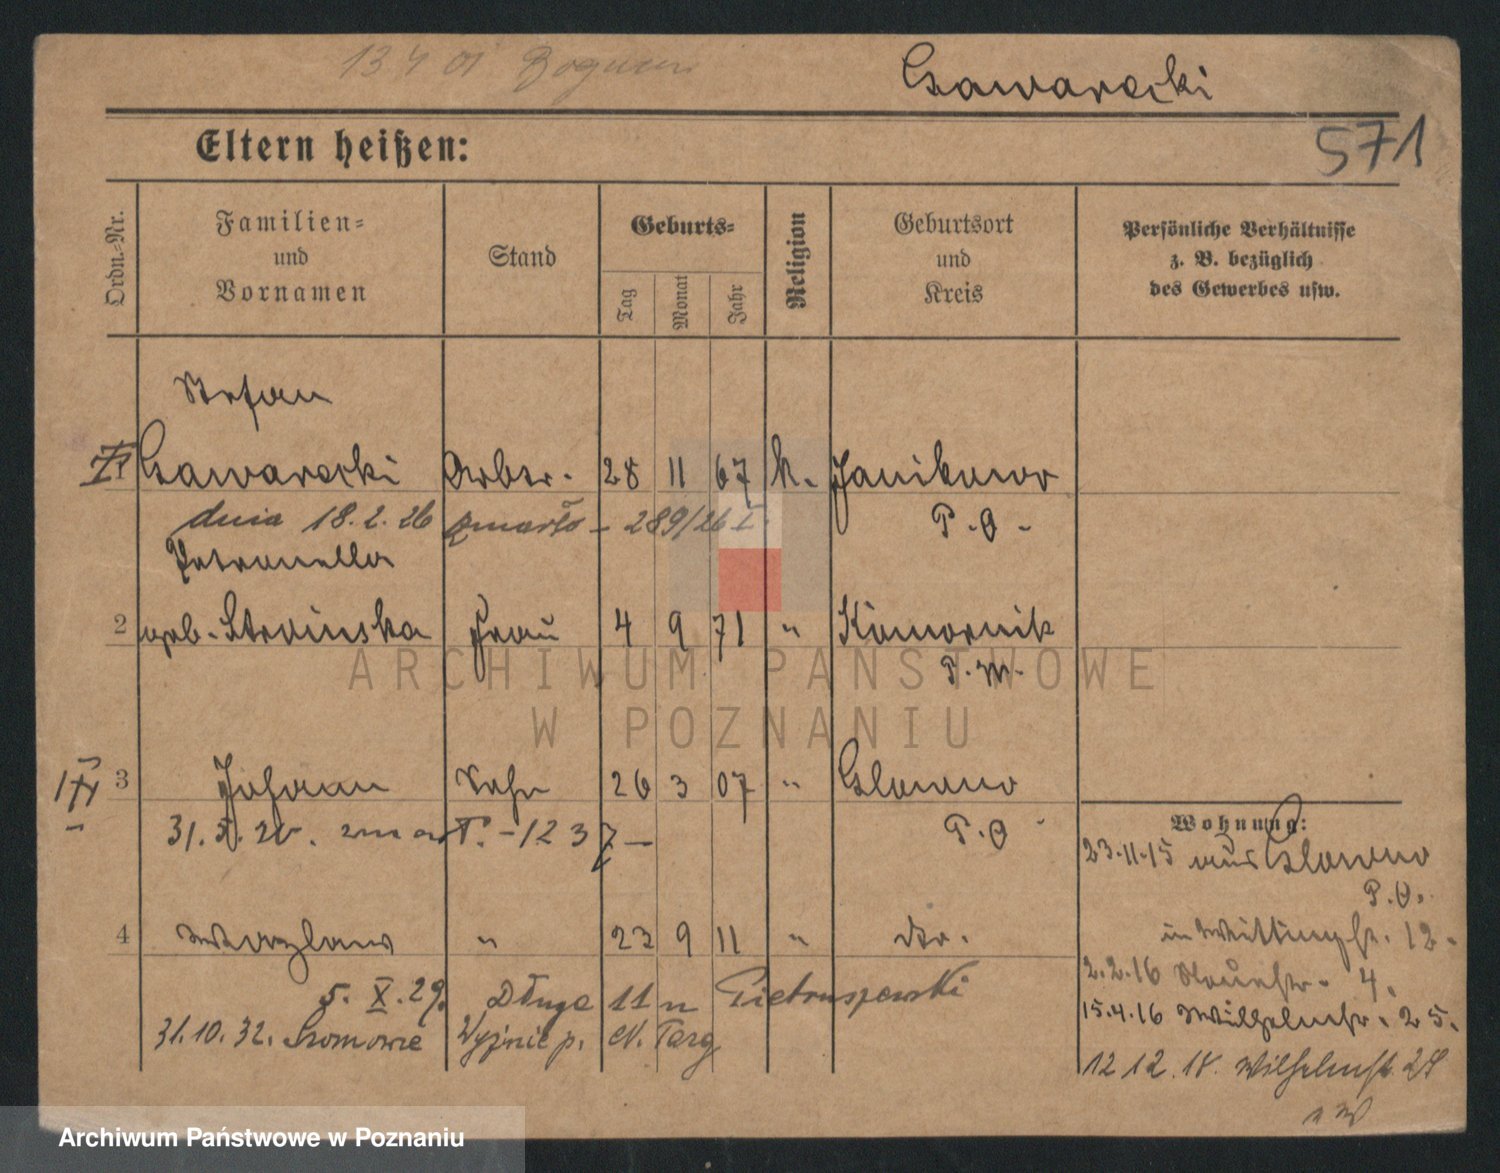 13 4 01
Czawarecki
571
Eltern heißen:
Ordn.-Nr.
Familien-
und
Vornamen
Stand
Geburts-
Tag
Monat
Jahr
Religion
Geburtsort
und
Kreis
Persönliche Verhältnisse
z. B. bezüglich
des Gewerbes usw.
Stefan
1 Czawarecki Arbtr. 28 11 67 k. Janikowo
dnia 18.2.26 zmarło - 289/26 I. P.O -
Petronella
2 geb. Stroinska Frau 4 9 71 " Komornik
P.W.
3 Johann Sohn 26 3 07 " Glowno
31.5.20. zmarł. - 1237 - P.O
Wohnung:
23.11.15 aus Glowno
P.O.
4 Wazlaw " 23 9 11 " dto.
in 12.
2.2.16 4.
5. X. 29. Długa 11 u Pietruszewski
15.4.16 Wilhelmstr. 25.
31.10.32. Sromowce Wyżnie p. N. Targ
12 12.18. Wilhelmstr. 28
ARCHIWUM PAŃSTWOWE
W POZNANIU
Archiwum Państwowe w Poznaniu